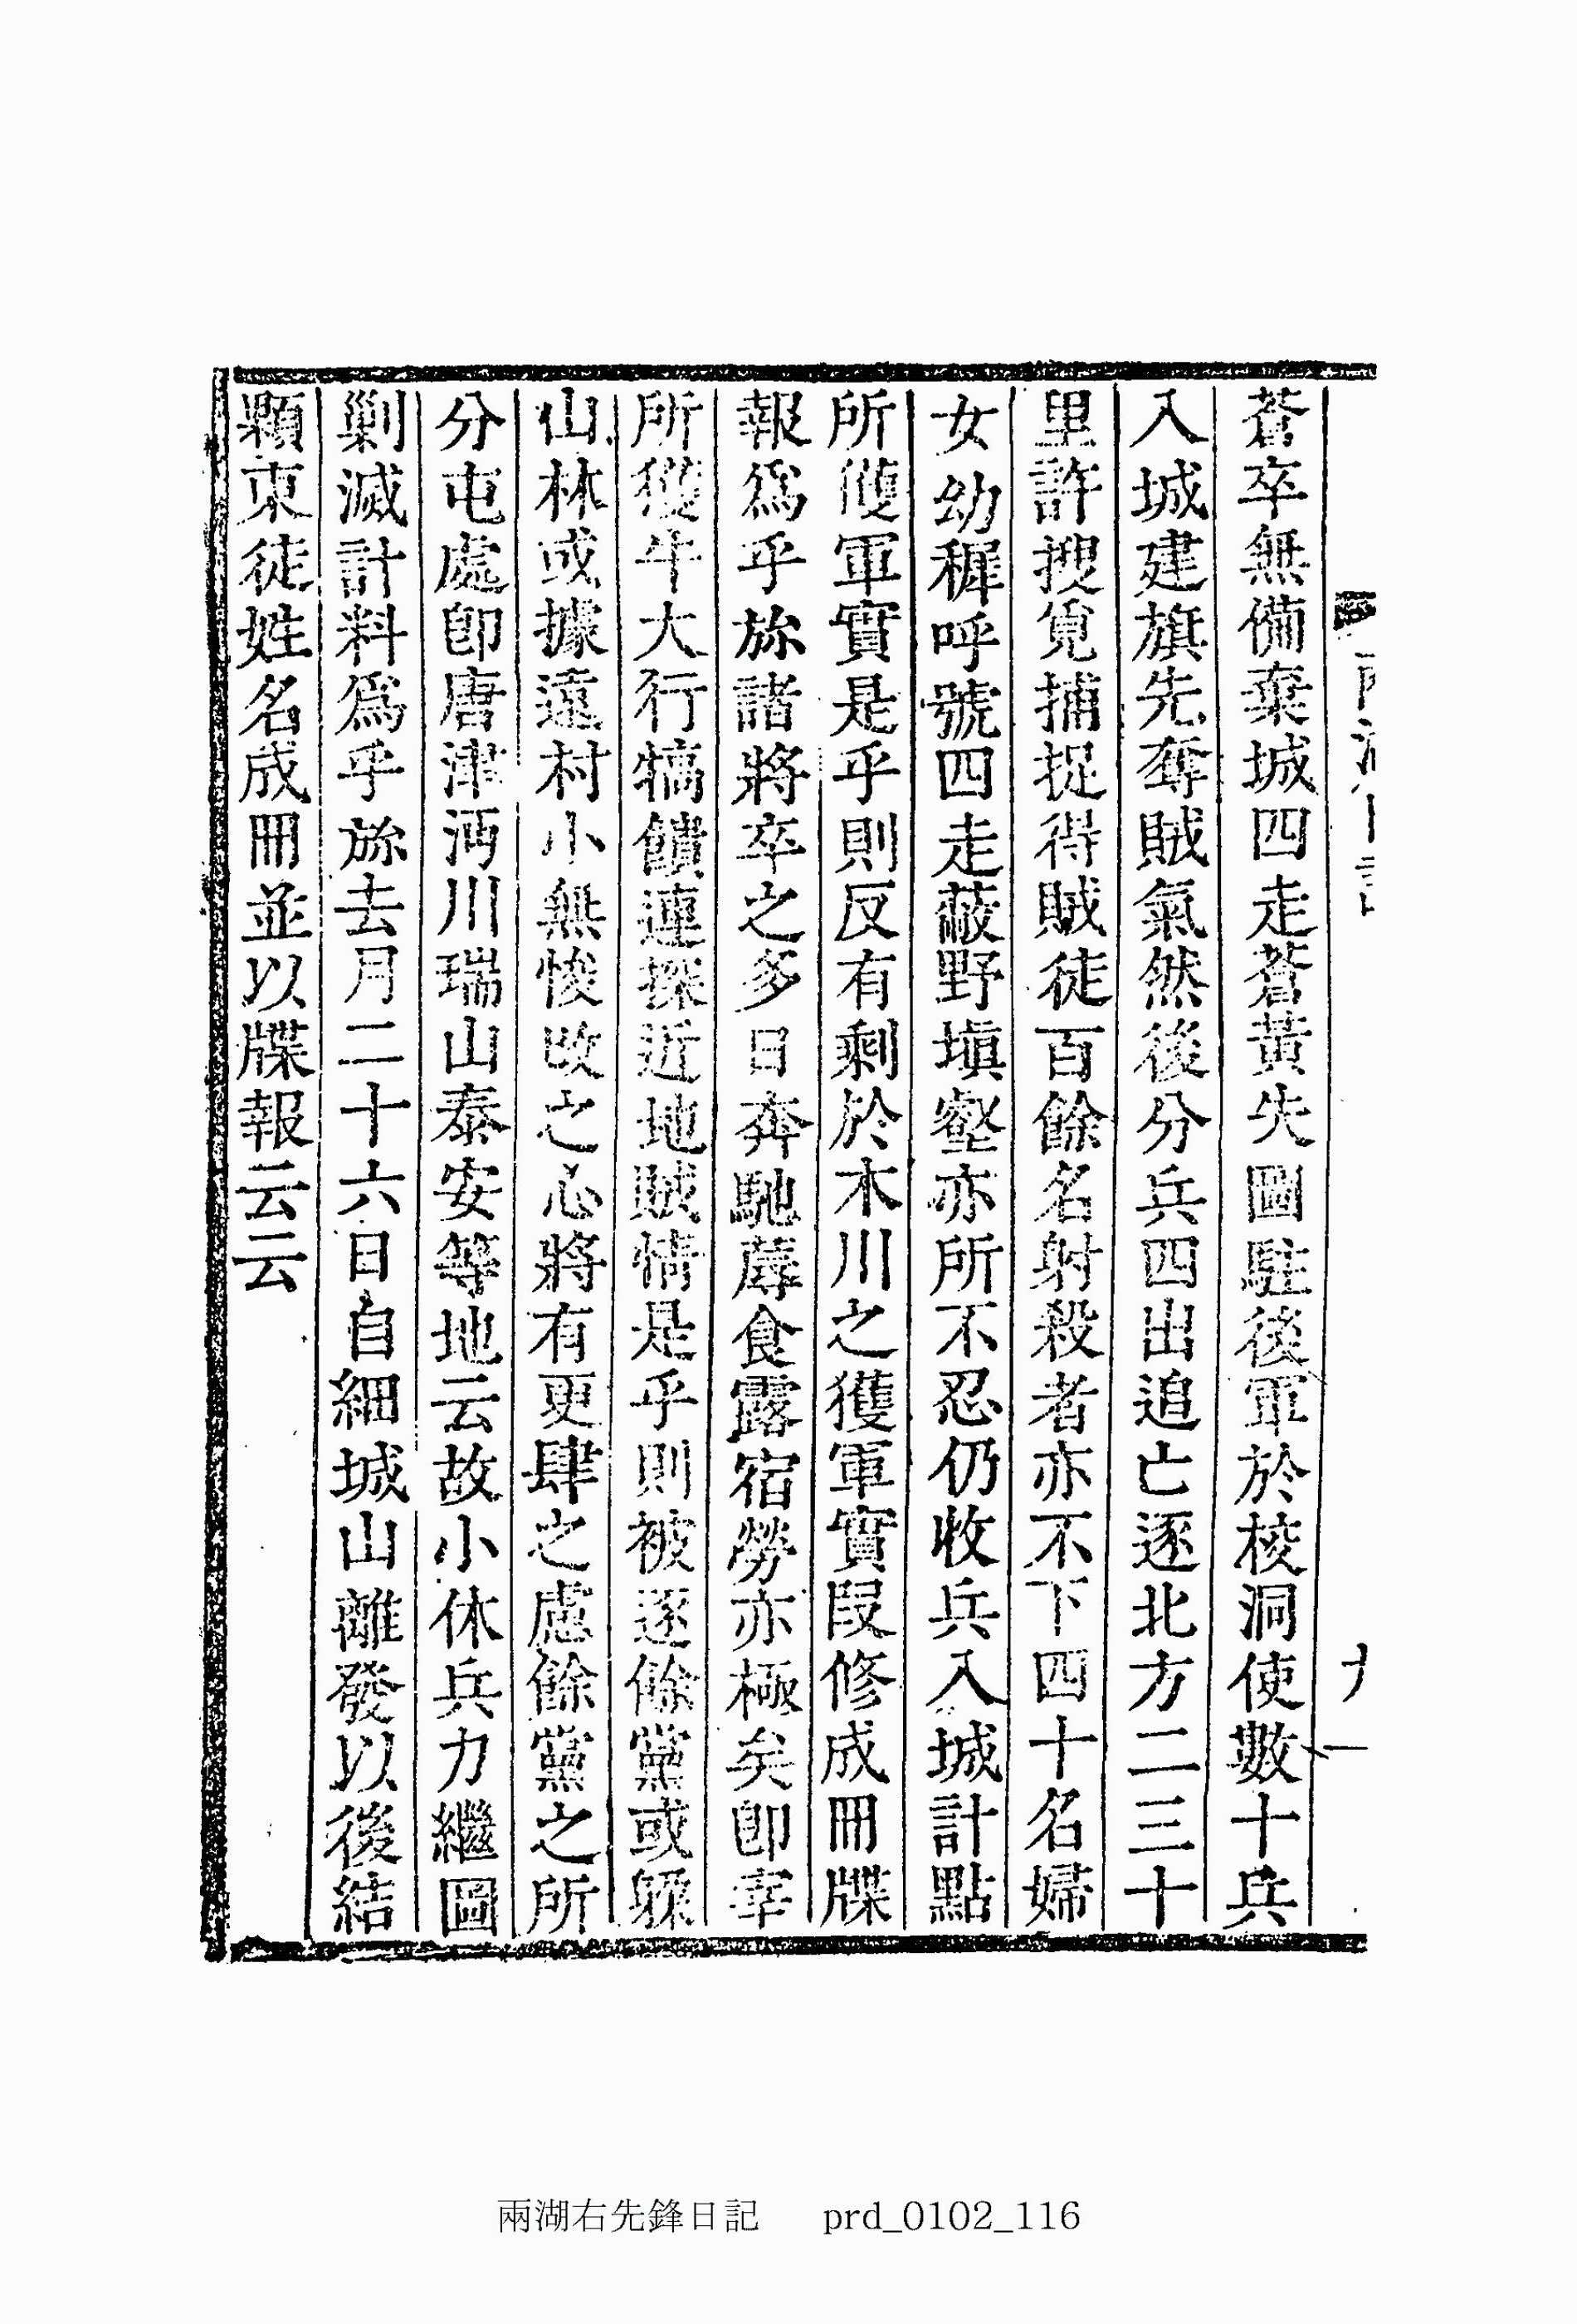 蒼卒無備棄城四走蒼黃失圖駐後軍於棱洞使數十兵
入城建旗先奪賊氣然後分兵四出追亡逐北方二三十
里許搜覓捕捉得賊徒百餘名射殺者亦不下四十名婦
女幼穉呼號四走蔽野塡壑亦所不忍仍收兵入城計點
所獲軍實是乎則反有剩於木川之獲軍實段修成冊牒
報爲乎旀諸將卒之多日奔馳蓐食露宿勞亦極矣卽宰
所獲牛大行犒饋連探近地賊情是乎則被逐餘黨或躱
山林或據遠村小無悛改之心將有更肆之慮餘黨之所
分屯處卽唐津沔川瑞山泰安等地云故小休兵力繼圖
剿滅計料爲乎旀去月二十六日自細城山離發以後結
顆東徒姓名成冊並以牒報云云
兩湖右先鋒日記 prd_0102_116